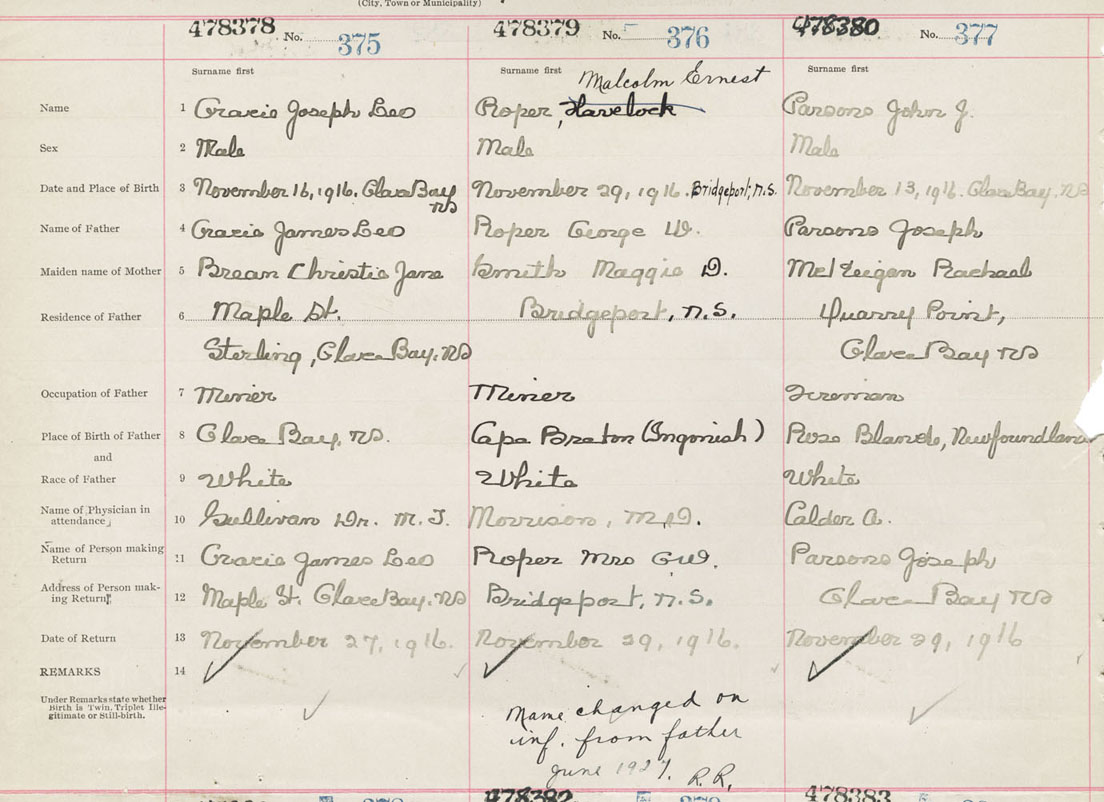 (City, Town or Municipality)
478378 No. 375 478379 No. 376 478380 No. 377
Surname first Surname first Surname first
Malcolm Ernest
Name 1 Gracie Joseph Leo Roper, Havelock Parsons John J.
Sex 2 Male Male Male
Date and Place of Birth 3 November 16, 1916. Glace Bay NS November 29, 1916. Bridgeport, N.S. November 13, 1916. Glace Bay. NS
Name of Father 4 Gracie James Leo Roper George W. Parsons Joseph
Maiden name of Mother 5 Christie Jane Smith Maggie D. Rachael
Residence of Father 6 Maple St. Bridgeport, N.S. Quarry Point,
Sterling, Glace Bay. NS Glace Bay NS
Occupation of Father 7 Miner Miner Fireman
Place of Birth of Father 8 Glace Bay, NS. Cape Breton (Ingonish) Rose Blanche, Newfoundland
and
Race of Father 9 White White White
Name of Physician in
attendance 10 Sullivan Dr. M. T. Morrison, M.D. Calder A.
Name of Person making
Return 11 Gracie James Leo Roper Mrs G.W. Parsons Joseph
Address of Person mak-
ing Return 12 Maple St. Glace Bay. NS Bridgeport, N.S. Glace Bay NS
Date of Return 13 November 27, 1916. November 29, 1916. November 29, 1916
REMARKS 14
Under Remarks state whether
Birth is Twin, Triplet Ille-
gitimate or Still-birth.
Name changed on
inf. from father
June 1927. R.R.
478382 478383